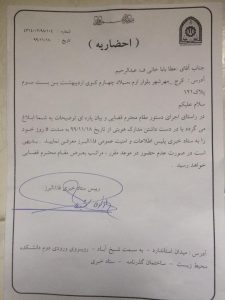 شماره
تاریخ ۹۹/۱۱/۱۸
( احضاریه )
جناب آقای : عطا بابا خانی فد عبدالرحیم
آدرس : کرج _مهرشهر بلوار ارم _ چهارم کوی اردیبهشت بین بیست
پلاک۱۴۱
سلام علیکم
در راستای اجرای دستور مقام محترم قضایی و بیان پاره ای توضیحات به شما ابلاغ
می گردد با در دست داشتن مدارک هویتی از تاریخ ۹۹/۱۱/۱۸ به مدت ۵ روز خود
را به ستاد خبری پلیس اطلاعات و امنیت عمومی فاتب البرز معرفی نمایید . بدیهی
است در صورت عدم حضور در موعد مقرر ، مراتب بعرض مقام محترم قضایی
خواهد رسید .
رییس ستاد خبری فاتب البرز
آدرس : میدان استاندارد _ به سمت شیخ آباد _ روبروی ورودی دوم دانشکده
محیط زیست _ ساختمان گذرنامه _ ستاد خبری